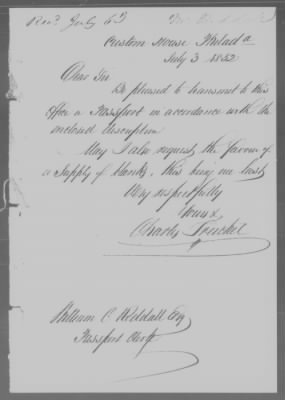 Recd July 6th
Custom House Philada
July 3 1852
Dear Sir
Be pleased to transmit to this
Office a Passport in accordance with the
enclosed description
May I also request the favour of
a supply of blanks, this being our last
Very respectfully
Yours
Charles
William C. Reddall Esq
Passport Clerk